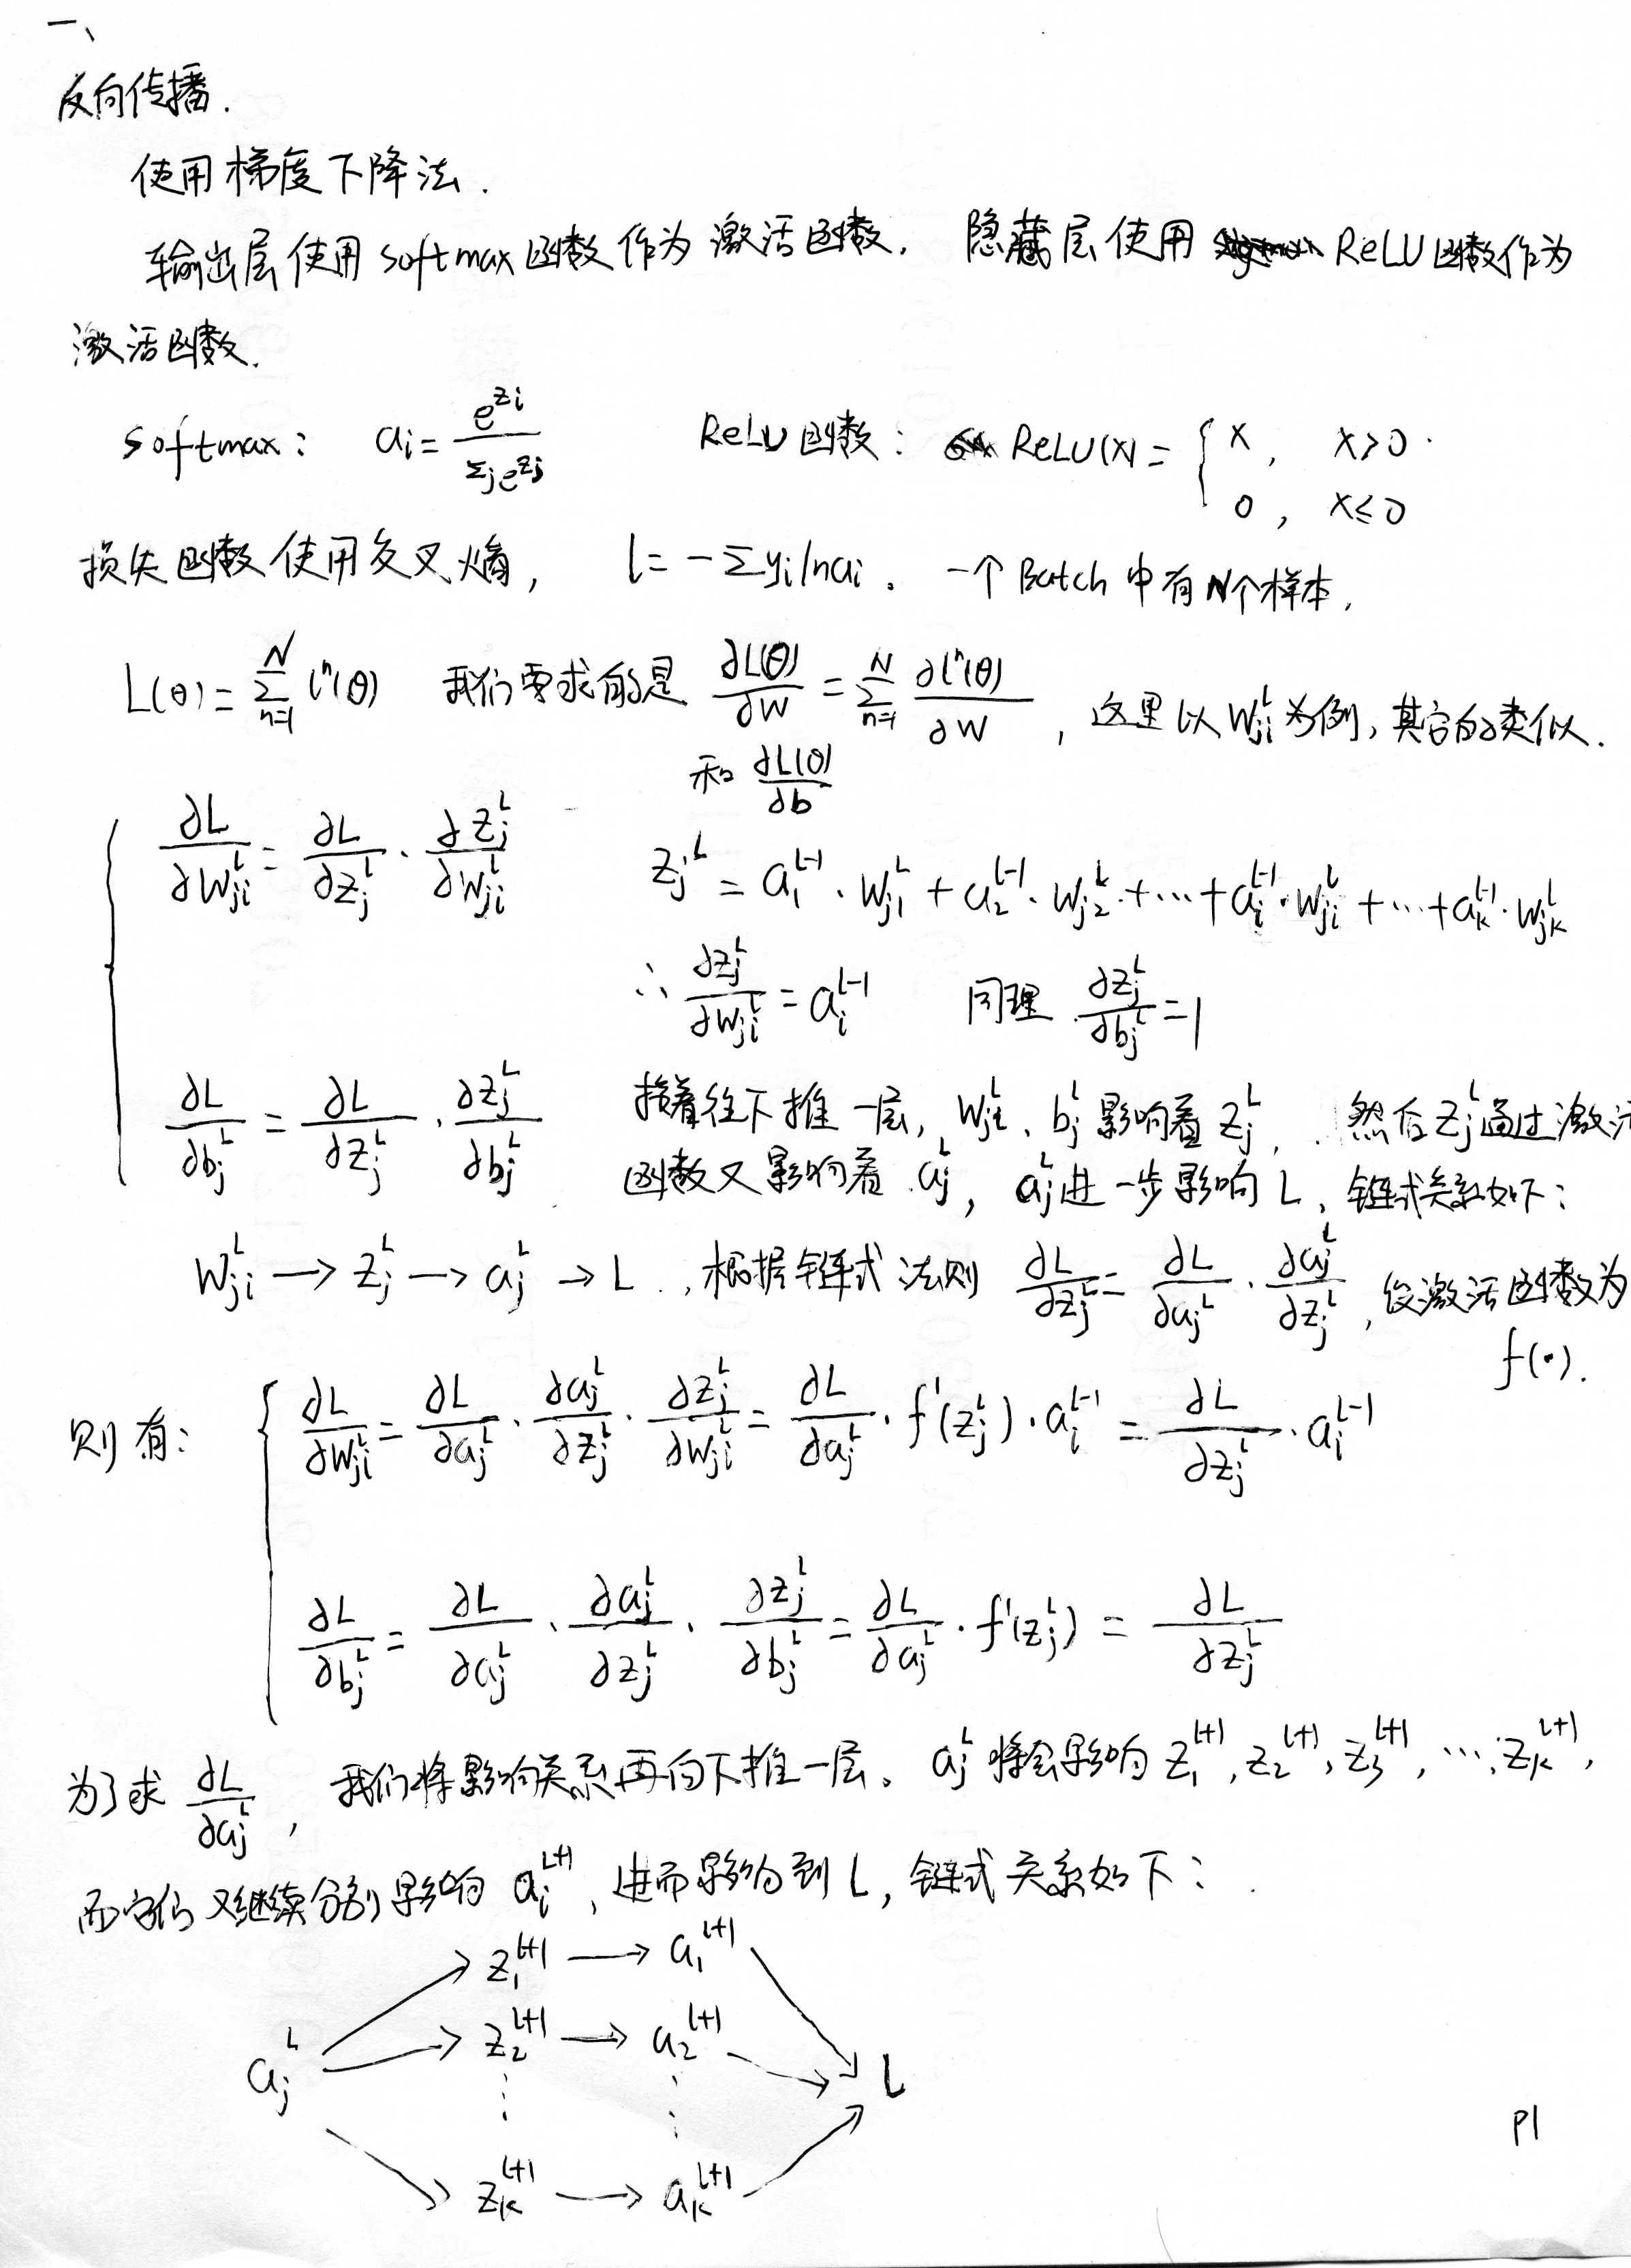 一、
反向传播.
使用梯度下降法.
输出层使用softmax函数作为激活函数, 隐藏层使用 ReLU函数作为
激活函数.
softmax: a_i = e^{z_i} / Σ_j e^{z_j} ReLU函数: ReLU(x) = { x, x>0. 0, x≤0
损失函数使用交叉熵, l = -Σ y_i ln a_i 。 一个Batch中有N个样本,
L(θ) = Σ_{n=1}^{N} l^n(θ) 我们要求的是 ∂L(θ)/∂W = Σ_{n=1}^{N} ∂l^n(θ)/∂W , 这里以 W_{ji}^L 为例, 其它的类似.
和 ∂L(θ)/∂b
{ ∂L/∂W_{ji}^L = ∂L/∂z_j^L · ∂z_j^L/∂W_{ji}^L z_j^L = a_1^{L-1} · W_{j1}^L + a_2^{L-1} · W_{j2}^L + ⋯ + a_i^{L-1} · W_{ji}^L + ⋯ + a_k^{L-1} · W_{jk}^L
∴ ∂z_j^L/∂W_{ji}^L = a_i^{L-1} 同理 ∂z_j^L/∂b_j^L = 1
∂L/∂b_j^L = ∂L/∂z_j^L · ∂z_j^L/∂b_j^L 接着往下推一层, W_{ji}^L、b_j^L 影响着 z_j^L, 然后 z_j^L 通过激活
函数又影响着 a_j^L, a_j^L 进一步影响 L, 链式关系如下:
W_{ji}^L → z_j^L → a_j^L → L , 根据链式法则 ∂L/∂z_j^L = ∂L/∂a_j^L · ∂a_j^L/∂z_j^L , 设激活函数为
f(·).
则有: { ∂L/∂W_{ji}^L = ∂L/∂a_j^L · ∂a_j^L/∂z_j^L · ∂z_j^L/∂W_{ji}^L = ∂L/∂a_j^L · f'(z_j^L) · a_i^{L-1} = ∂L/∂z_j^L · a_i^{L-1}
∂L/∂b_j^L = ∂L/∂a_j^L · ∂a_j^L/∂z_j^L · ∂z_j^L/∂b_j^L = ∂L/∂a_j^L · f'(z_j^L) = ∂L/∂z_j^L
为了求 ∂L/∂a_j^L , 我们将影响关系再向下推一层。a_j^L 将会影响 z_1^{L+1}, z_2^{L+1}, z_3^{L+1}, ⋯, z_k^{L+1},
而它们又继续分别影响 a_i^{L+1}, 进而影响到 L, 链式关系如下:
z_1^{L+1} → a_1^{L+1}
z_2^{L+1} → a_2^{L+1}
a_j^L ⋮ ⋮ L
z_k^{L+1} → a_k^{L+1}
P1